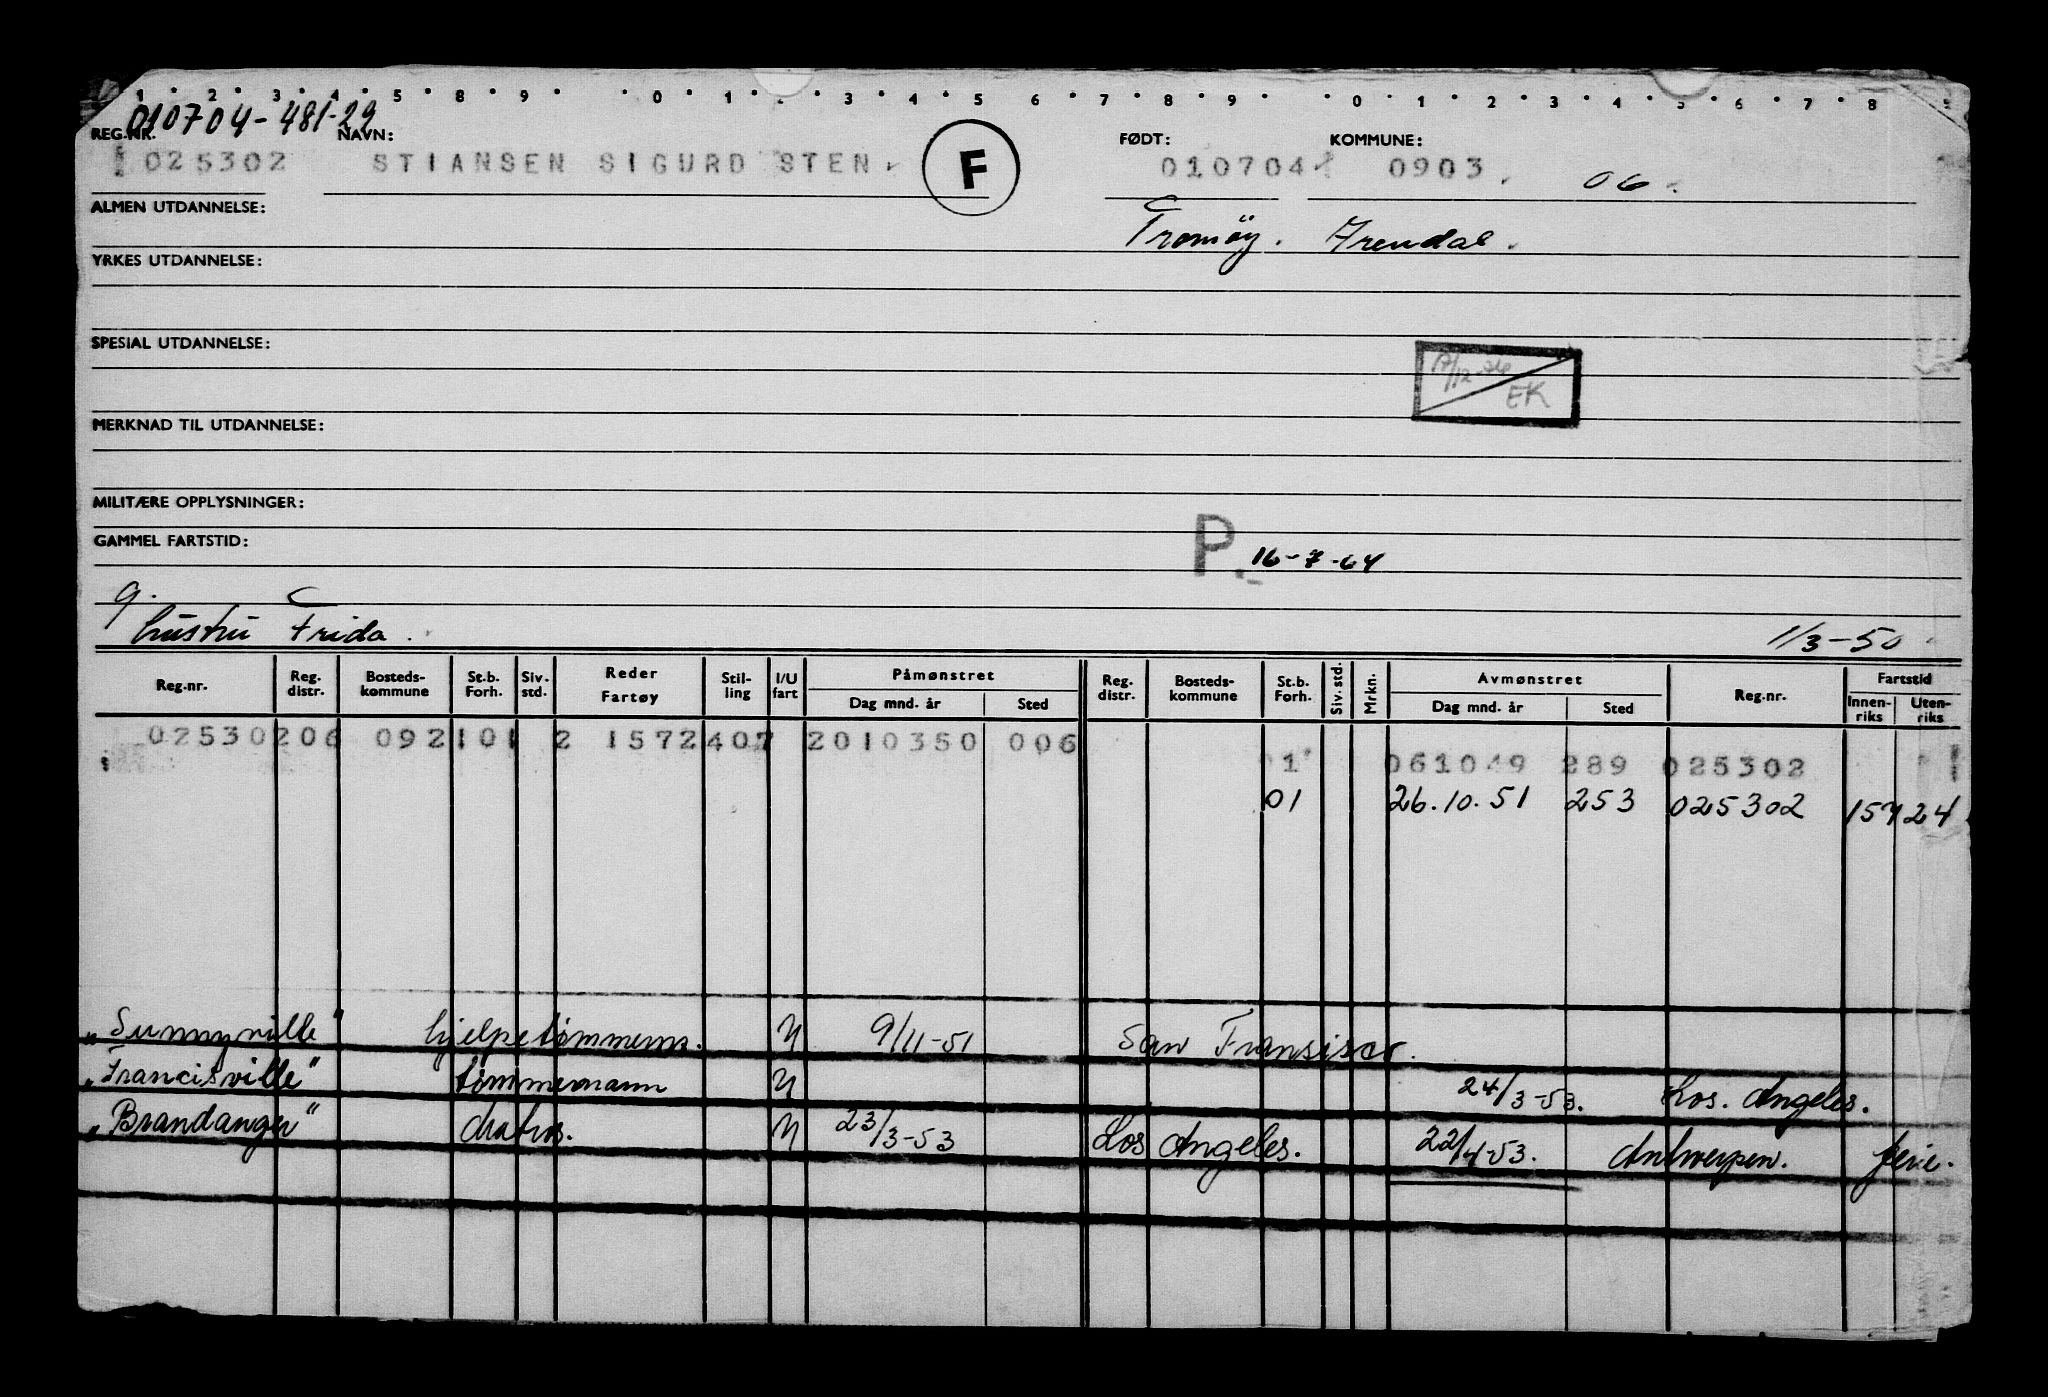 1 · 2 · 3 · 4 · 5 · 8 · 9 · · 0 · 1 · · 3 · 4 · 5 6 · 7 · 8 · 9 · · 0 · 1 · 2 · 3 · 4 · 5 · 6 · 7 · 8
010704-481-29
REG.NR. NAVN: FØDT: KOMMUNE:
025302 STIANSEN SIGURD STEN F 010704 0903 06
ALMEN UTDANNELSE:
Tromöy. Arendal.
YRKES UTDANNELSE:
SPESIAL UTDANNELSE:
EK
MERKNAD TIL UTDANNELSE:
MILITÆRE OPPLYSNINGER:
GAMMEL FARTSTID:
P. 16-7-64
g.
hustru Frida. 1/3-50
Reg.nr. Reg. distr. Bosteds- kommune St.b. Forh. Siv. std. Reder Fartøy Stil- ling I/U fart Påmønstret Dag mnd. år Sted Reg. distr. Bosteds- kommune St.b. Forh. Siv. std. Mrkn. Avmønstret Dag mnd. år Sted Reg.nr. Fartstid Innen- riks Uten- riks
025302 06 0921 01 2 1572 407 2010350 006
01 061049 289 025302
01 26.10.51 253 025302 154 24
„Sunnyville" hjelpetømmerm. U 9/11-51 San Fransisco.
„Francisville" tømmermann U 24/3-53. Los. Angeles.
„Brandanger" Matros. U 23/3-53 Los Angeles. 22/4-53. Antwerpen. ferie.